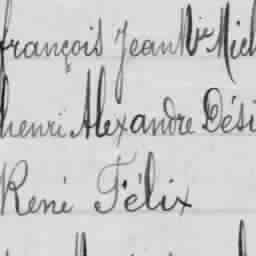 françois Jean Mie Mich
henri Alexandre Dési
René Félix